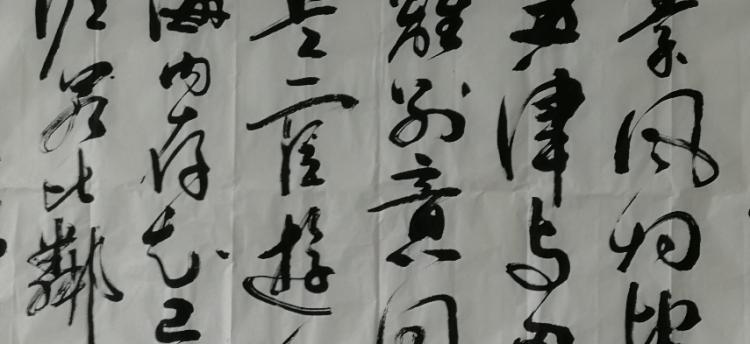 秦风烟望
五津与君
離别意同
是宦遊人
海内存知己
涯若比鄰